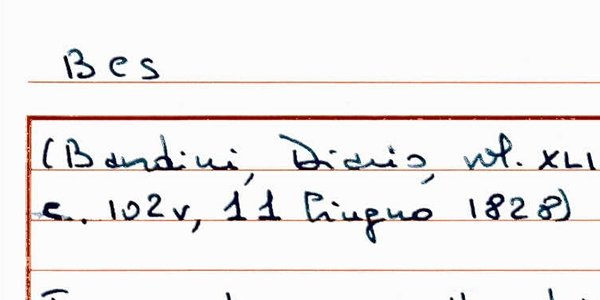 Bes
(Bandini, Diario, vol. XLI
c. 102v, 11 Giugno 1828)